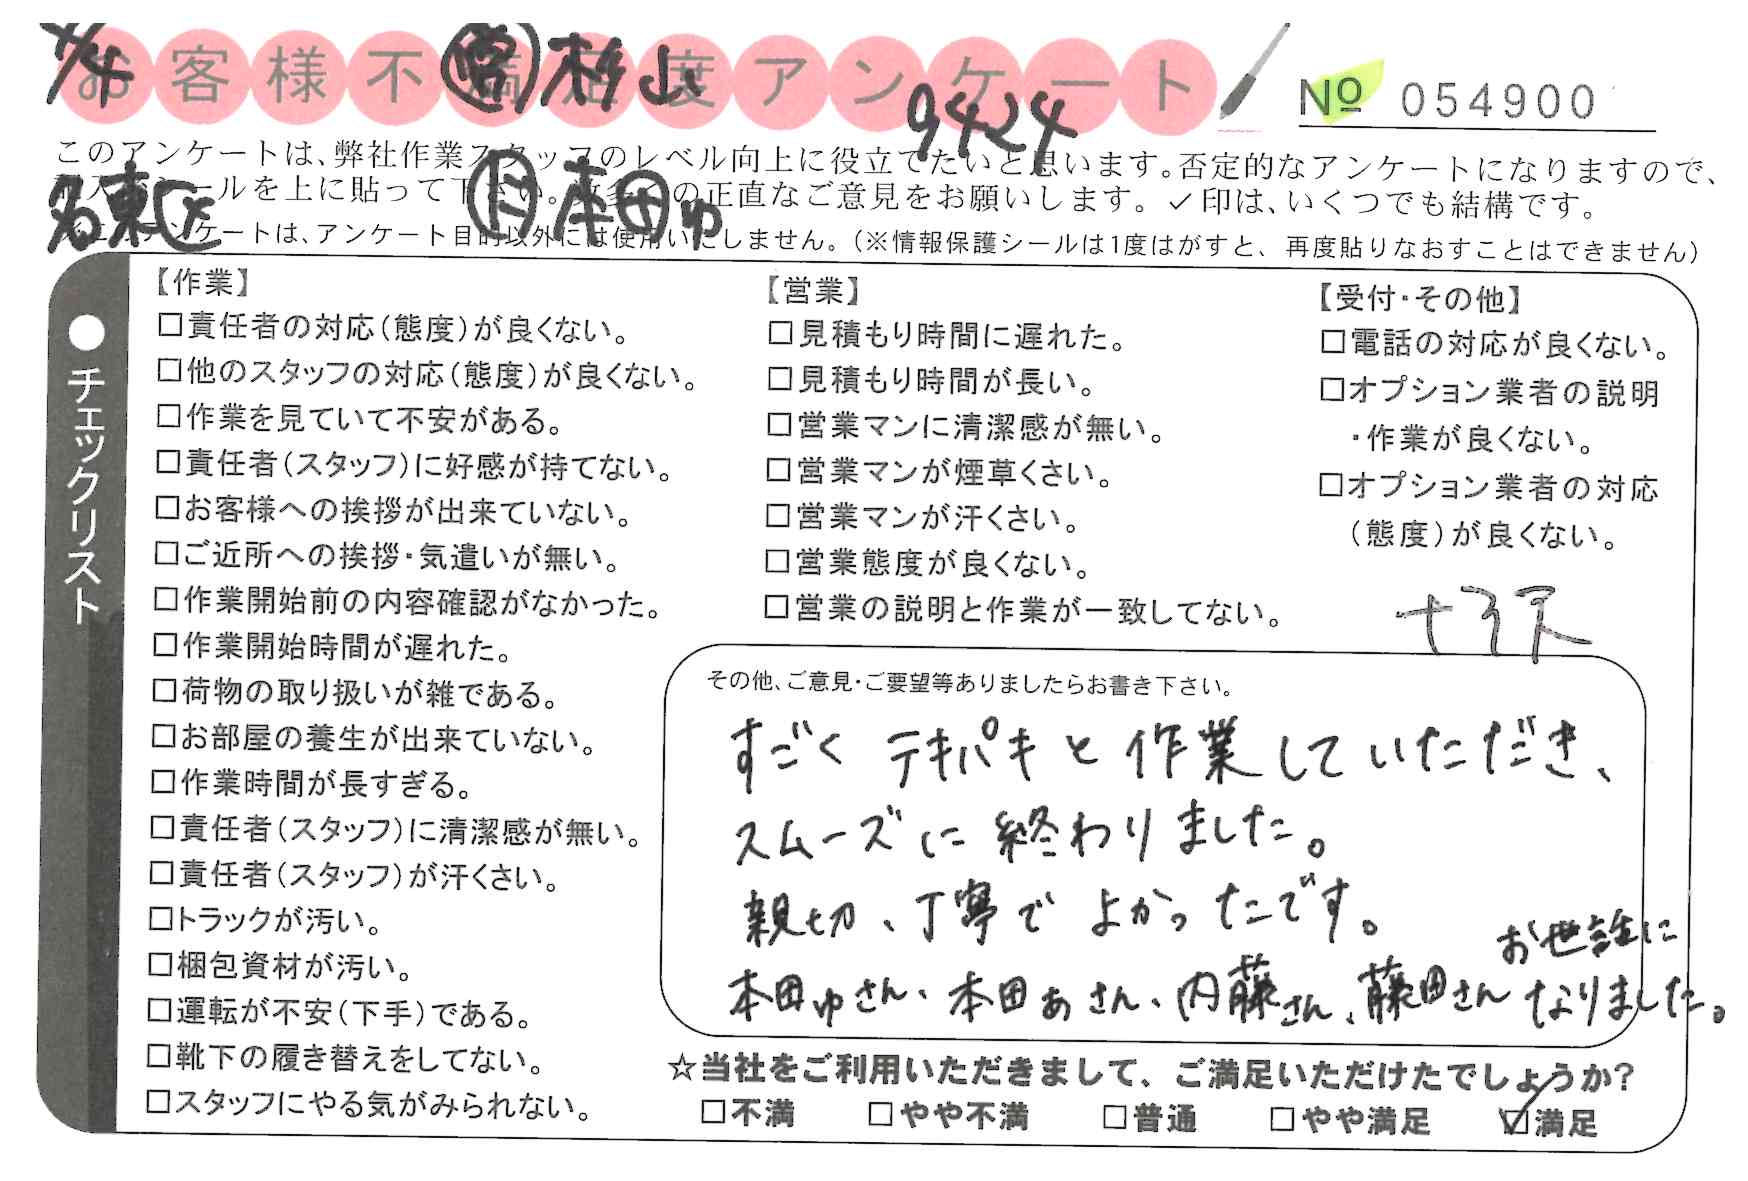 4/4
お客様不満足度アンケート
営 杉山
9424
№ 054900
このアンケートは、弊社作業スタッフのレベル向上に役立てたいと思います。否定的なアンケートになりますので、
シールを上に貼って下さい。数多くの正直なご意見をお願いします。✓印は、いくつでも結構です。
名東区
本田ゆ
※このアンケートは、アンケート目的以外には使用いたしません。（※情報保護シールは1度はがすと、再度貼りなおすことはできません）
●チェックリスト
【作業】
□責任者の対応（態度）が良くない。
□他のスタッフの対応（態度）が良くない。
□作業を見ていて不安がある。
□責任者（スタッフ）に好感が持てない。
□お客様への挨拶が出来ていない。
□ご近所への挨拶・気遣いが無い。
□作業開始前の内容確認がなかった。
□作業開始時間が遅れた。
□荷物の取り扱いが雑である。
□お部屋の養生が出来ていない。
□作業時間が長すぎる。
□責任者（スタッフ）に清潔感が無い。
□責任者（スタッフ）が汗くさい。
□トラックが汚い。
□梱包資材が汚い。
□運転が不安（下手）である。
□靴下の履き替えをしてない。
□スタッフにやる気がみられない。
【営業】
□見積もり時間に遅れた。
□見積もり時間が長い。
□営業マンに清潔感が無い。
□営業マンが煙草くさい。
□営業マンが汗くさい。
□営業態度が良くない。
□営業の説明と作業が一致してない。
【受付・その他】
□電話の対応が良くない。
□オプション業者の説明
・作業が良くない。
□オプション業者の対応
（態度）が良くない。
その他、ご意見・ご要望等ありましたらお書き下さい。
すごくテキパキと作業していただき、
スムーズに終わりました。
親切、丁寧でよかったです。
本田ゆさん、本田あさん、内藤さん、藤田さん お世話に
なりました。
☆当社をご利用いただきまして、ご満足いただけたでしょうか？
□不満 □やや不満 □普通 □やや満足 ☑満足